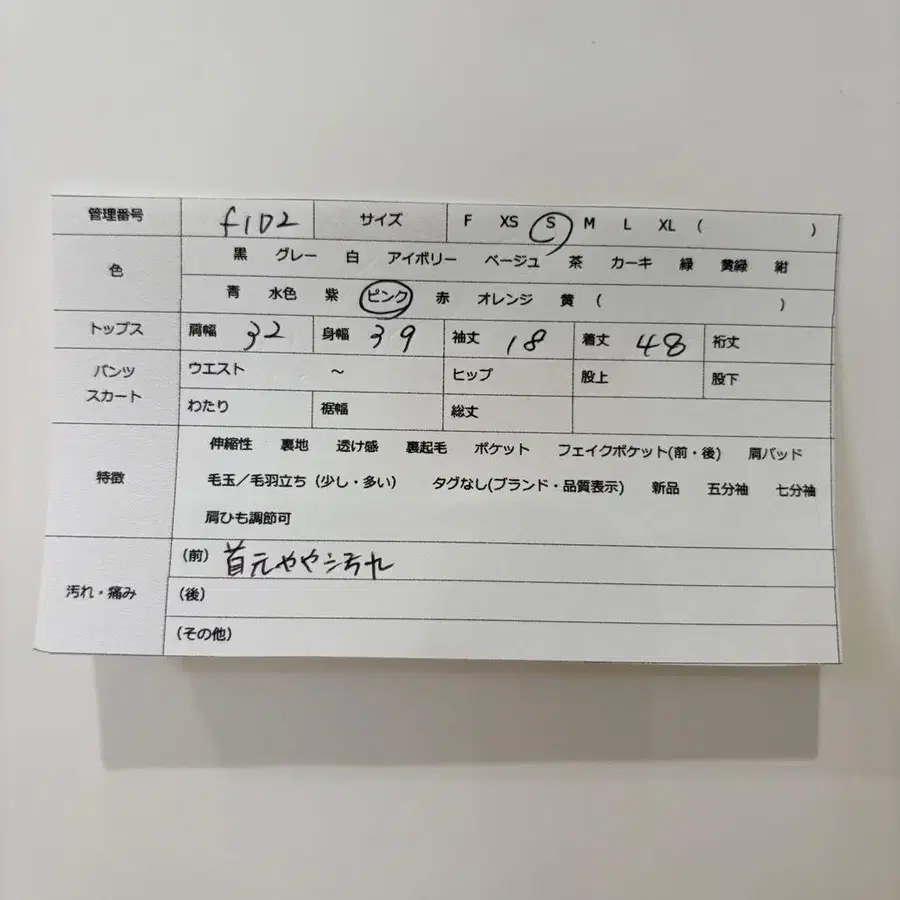 管理番号 f102 サイズ F XS S M L XL ( )
色 黒 グレー 白 アイボリー ベージュ 茶 カーキ 緑 黄緑 紺
青 水色 紫 ピンク 赤 オレンジ 黄 ( )
トップス 肩幅 32 身幅 39 袖丈 18 着丈 48 裄丈
パンツ スカート ウエスト ～ ヒップ 股上 股下
わたり 裾幅 総丈
特徴 伸縮性 裏地 透け感 裏起毛 ポケット フェイクポケット(前・後) 肩パッド
毛玉／毛羽立ち（少し・多い） タグなし(ブランド・品質表示) 新品 五分袖 七分袖
肩ひも調節可
汚れ・痛み (前) 首元やや汚れ
(後)
(その他)